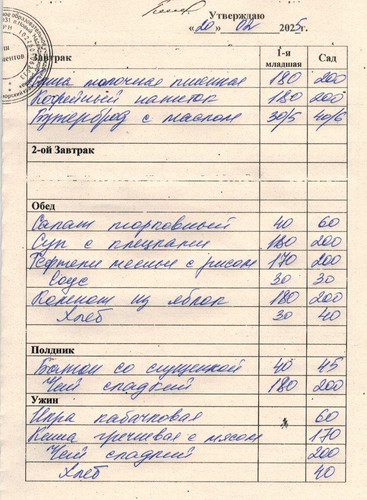 Утверждаю
«20» 02 2025г.
Завтрак I-я младшая Сад
Каша молочная пшенная 180 200
Кофейный напиток 180 200
Бутерброд с маслом 30/5 40/6
2-ой Завтрак
Обед
Салат морковный 40 60
Суп с клецками 180 200
Тефтели мясные с рисом 170 200
Соус 30 30
Компот из яблок 180 200
Хлеб 30 40
Полдник
Батон со сгущенкой 40 45
Чай сладкий 180 200
Ужин
Икра кабачковая 60
Каша гречневая с мясом 170
Чай сладкий 200
Хлеб 40